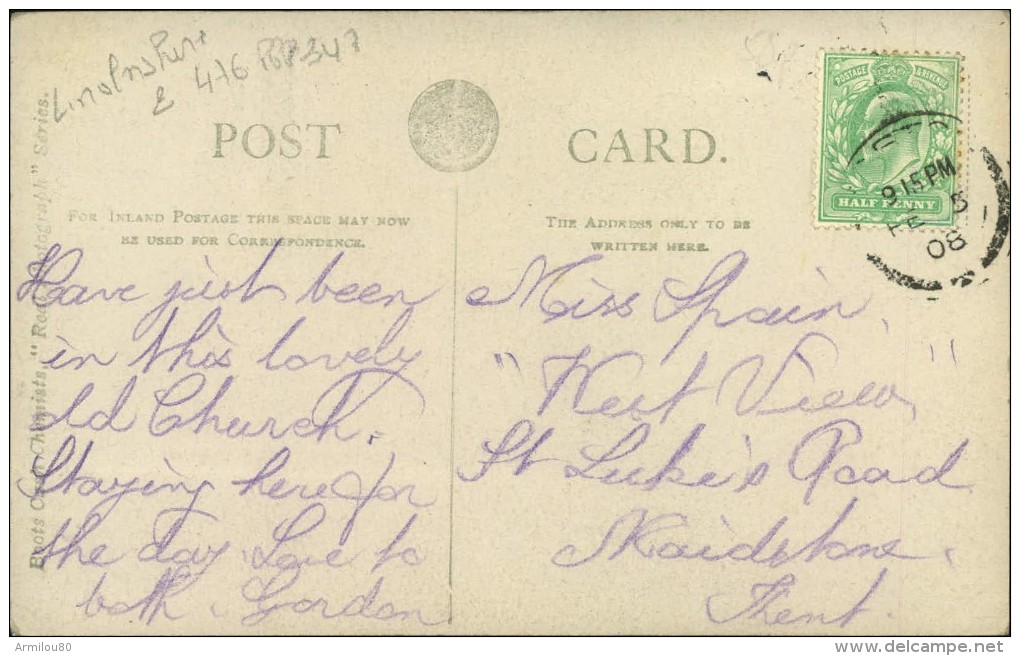 Lincolnshire
£ 476 347
POST CARD.
FOR INLAND POSTAGE THIS SPACE MAY NOW
BE USED FOR CORRESPONDENCE.
THE ADDRESS ONLY TO BE
WRITTEN HERE.
POSTAGE & REVENUE
HALF PENNY
9.15 PM
FE 5
08
Boots Cash Chemists, "Real Photograph" Series.
Have just been
in this lovely
old Church.
Staying here for
the day. Love to
both. Gordon
Miss Spain,
"Kent View"
St Luke's Road
Maidstone.
Kent.
Armilou80
delcampe.net